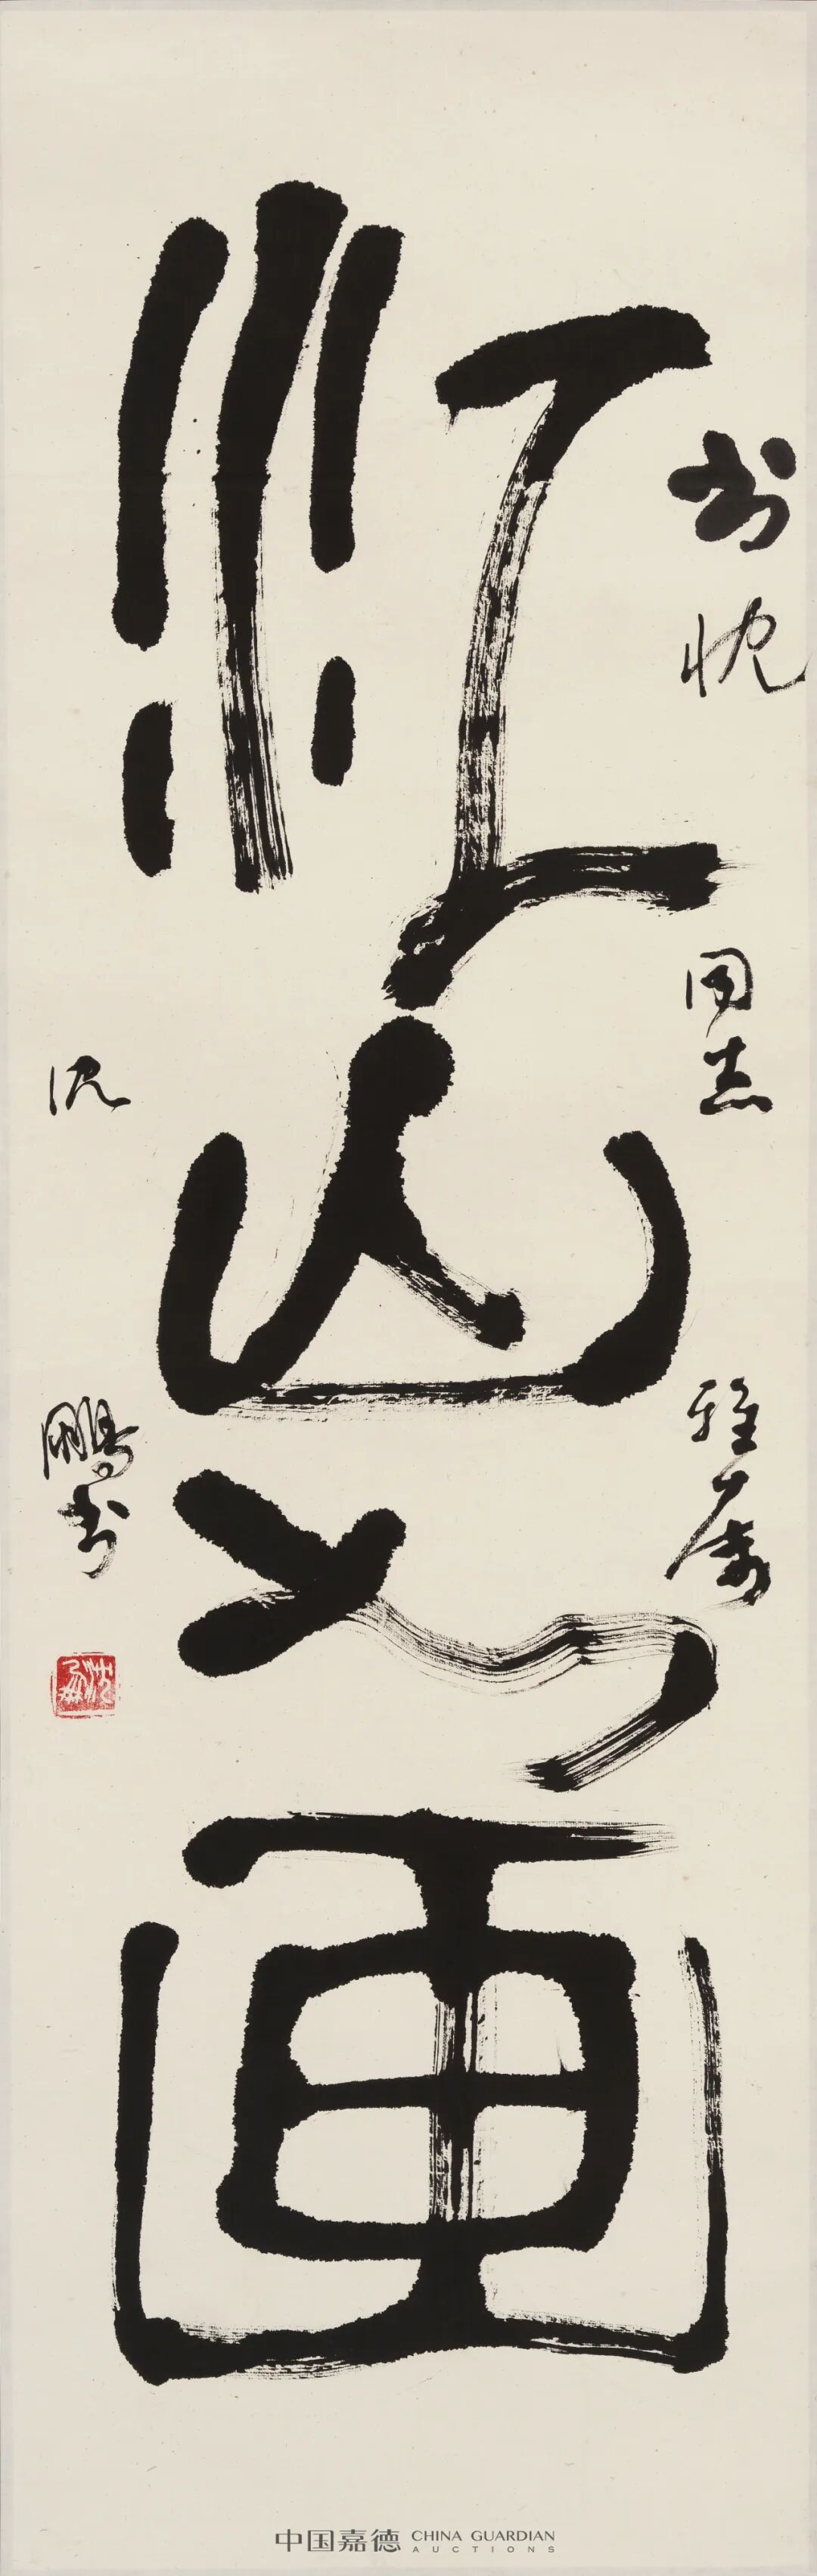 江山如画
书忱
同志
雅属
沈
鹏书
中国嘉德 CHINA GUARDIAN
AUCTIONS